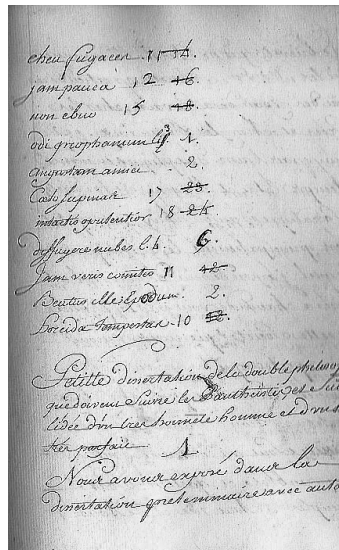 eheu fugaces 11 14.
jam pauca 12 16.
non ebur 15 18.
odi prophanum l. 3 1.
angustam amice 2.
Cœlo supinas 17 23.
intactis opulentior 18 24
diffugere nubes l. 4. 6.
Jam veris comites 11 42.
Beatus ille Epodum. 2.
horrida Tempestas 10 52.
Petitte dissertation de la double philosop
que doivent suivre les Panthéistes et sui
lidée d'un tres honnete homme et d'un s
tres parfait
1
Nous avons exposé dans la
dissertation preliminaire avec auta